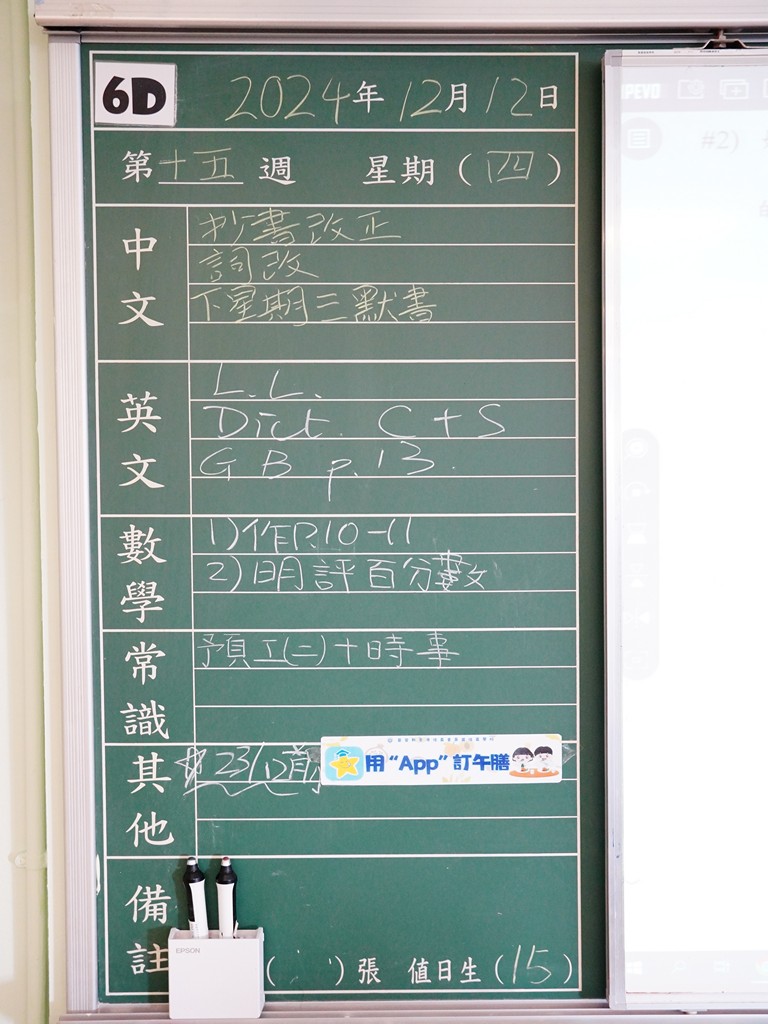 6D
2024年12月12日
第十五週 星期(四)
中文
抄書改正
詞改
下星期三默書
英文
L.L.
Dict. C + S
GB p.13.
數學
1)作P.10-11
2)明評百分數文
常識
預工(二)+時事
其他
*23/12前
用“App”訂午膳
備註
( )張 值日生(15)
EPSON
PEVO
#2)